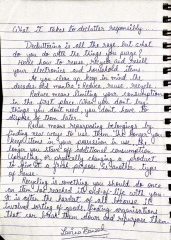 What it takes to declutter responsibly
Decluttering is all the rage but what
do you do with the things you purge?
Here's how to reuse, recycle and resell
your electronics and household items
As you clear out keep in mind the
decades old mantra: Reduce, reuse, recycle
Reduce means limiting your consumption
in the first place. When you don't buy
things you don't need, you don't have to
dispose of them later.
Reuse means repurposing belongings or
finding new ways to use them. The longer you
keep items in your possession in use, the
longer you stave off additional consumption
Upcycling, or creatively changing a product
to give it a fresh purpose is another type
of reuse.
Recycling is something you should do once
an item has reached the end of its life, but
it is often the hardest of all because it
involves sorting of goods, finding organisations
that can break them down and repurpose them